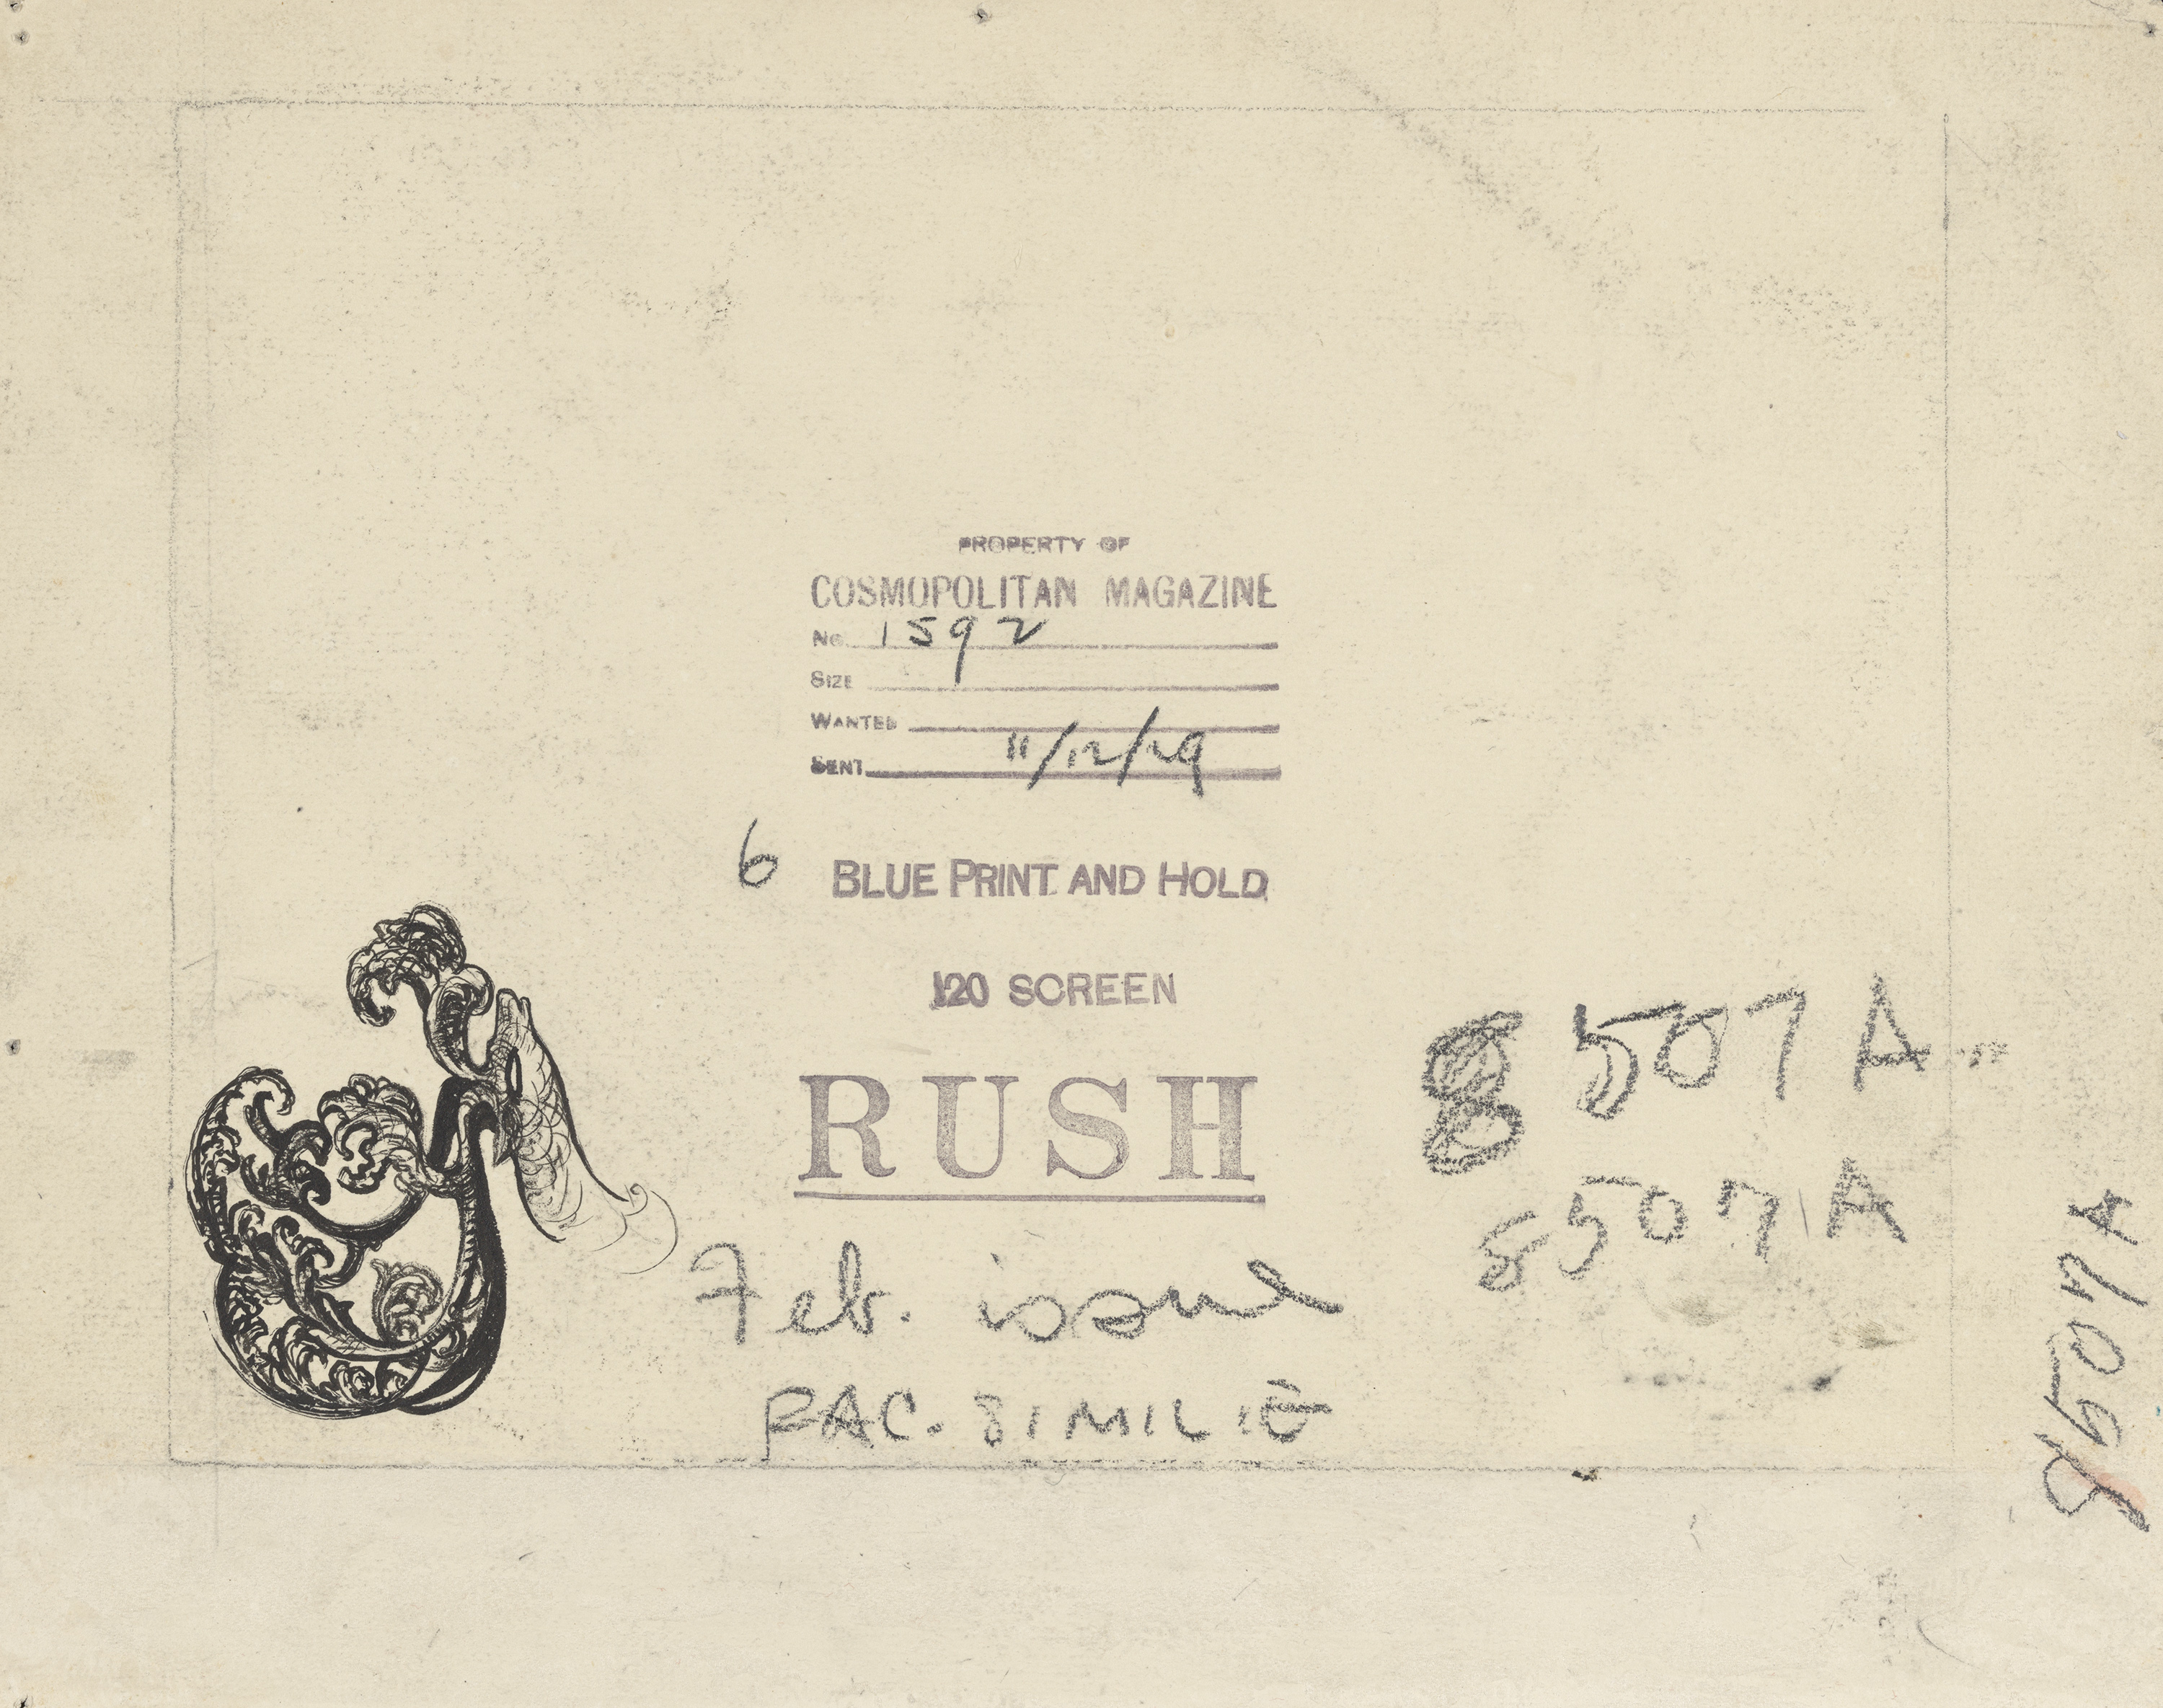 PROPERTY OF
COSMOPOLITAN MAGAZINE
No. 1592
SIZE
WANTED
SENT 11/12/29
6 BLUE PRINT AND HOLD
120 SCREEN
RUSH
Feb. issue
FAC. SIMILIE
8507A
8507A
8507A